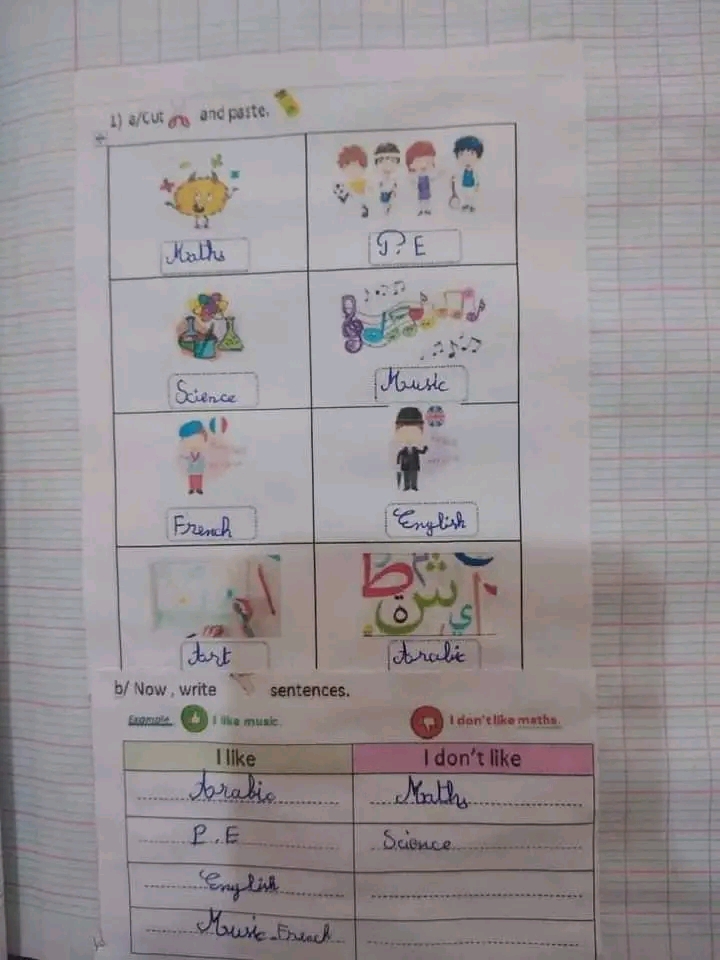 1) a/Cut and paste.
Maths
P.E
Science
Music
French
English
Art
Arabic
b/ Now, write sentences.
Example I like music. I don't like maths.
I like I don't like
Arabic Maths
P.E Science
English
Music-French